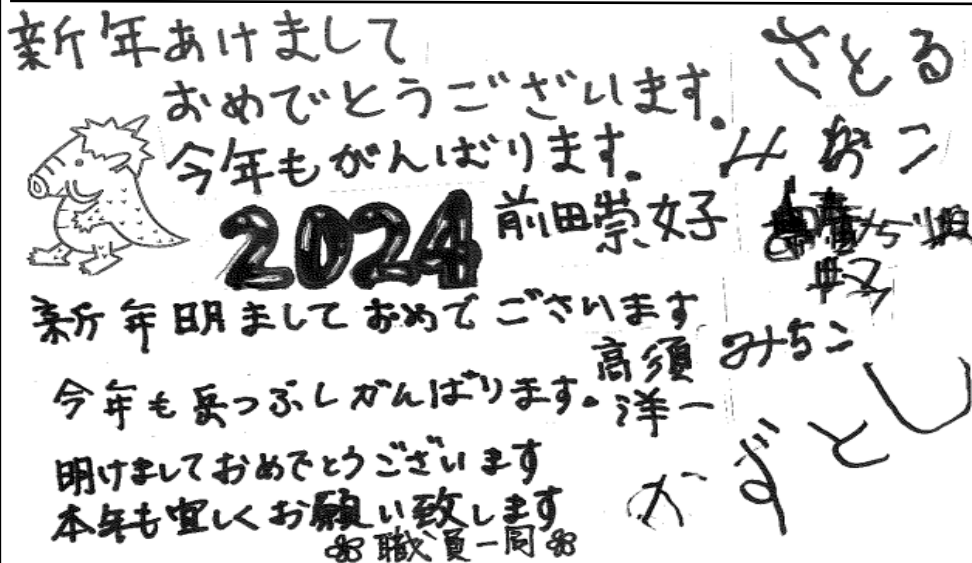 新年あけまして
おめでとうございます.
今年もがんばります.
2024
前田崇女子
新年明ましておめでございます
今年も岳つぶしがんばります.
高須
洋一
明けましておめでとうございます
本年も宜しくお願い致します
職員一同
さとる
みおこ
みちこ
かずとし